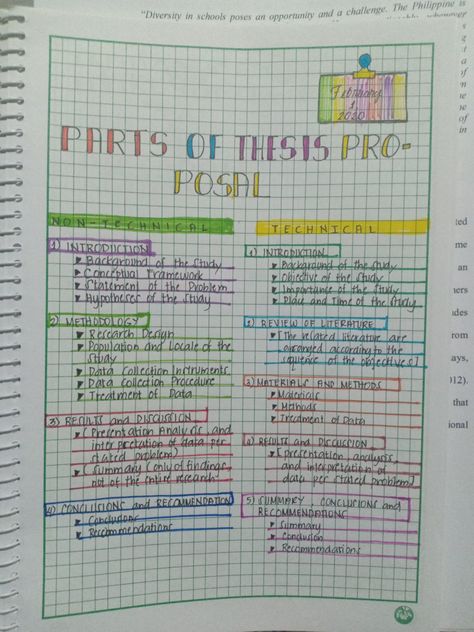 "Diversity in schools poses an opportunity and a challenge. The Philippine is
February
1,
2020
PARTS OF THESIS PRO-
POSAL
NON-TECHNICAL
1) INTRODUCTION
Background of the Study
Conceptual Framework
Statement of the Problem
Hypotheses of the Study
2) METHODOLOGY
Research Design
Population and Locale of the
Study
Data Collection Instruments
Data Collection Procedure
Treatment of Data
3) RESULTS and DISCUSSION
( Presentation Analysis, and
interpretation of data per
stated problem)
( Summary (only of findings,
not of the entire research
4) CONCLUSIONS and RECOMMENDATION
Conclusions
Recommendations
TECHNICAL
1) INTRODUCTION
Background of the Study
Objective of the Study
Importance of the Study
Place and Time of the Study
2) REVIEW OF LITERATURE
[The related literature are
arranged according to the
sequence of the objectives]
3) MATERIALS AND METHODS
Materials
Methods
Treatment of Data
4) RESULTS and DISCUSSION
[presentation analysis,
and interpretation of
data per stated problem]
5) SUMMARY, CONCLUSIONS and
RECOMMENDATIONS
Summary
Conclusion
Recommendations
of
in
ted
me
an
ners
ides
rom
ays,
)12).
that
ional